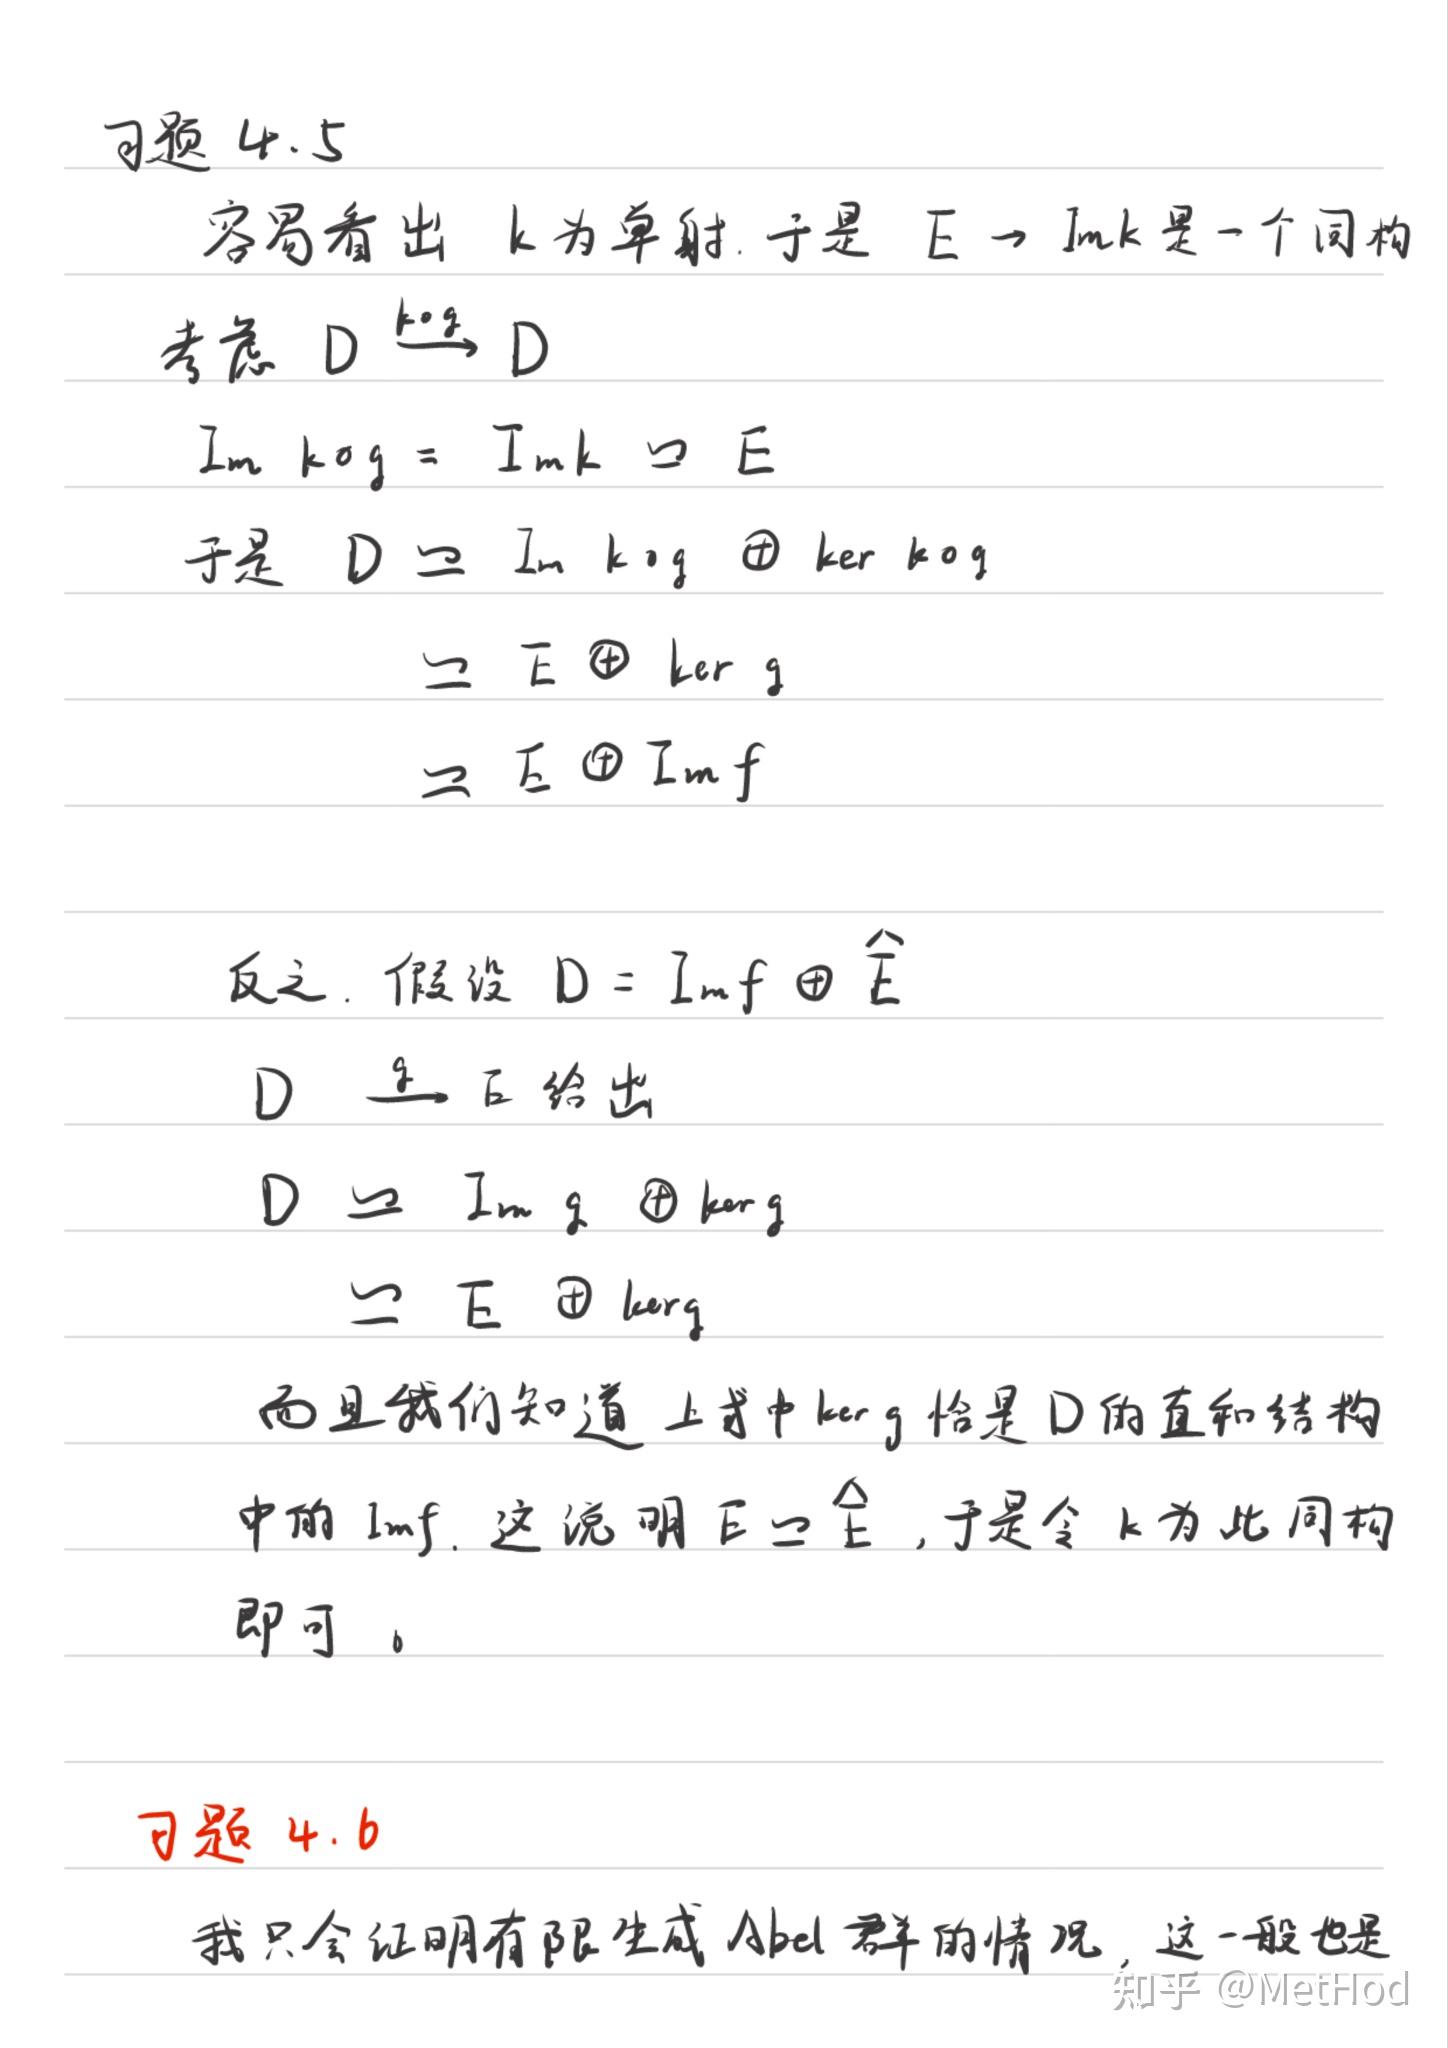 习题 4.5
容易看出 k为单射. 于是 E → Imk 是一个同构
考虑 D \xrightarrow{k∘g} D
Im k∘g = Imk ≃ E
于是 D ≃ Im k∘g ⊕ ker k∘g
≃ E ⊕ ker g
≃ E ⊕ Imf
反之. 假设 D = Imf ⊕ Ê
D \xrightarrow{g} E 给出
D ≃ Im g ⊕ ker g
≃ E ⊕ ker g
而且我们知道上式中 ker g 恰是 D 的直和结构
中的 Imf. 这说明 E ≃ Ê, 于是令 k 为此同构
即可。
习题 4.6
我只会证明有限生成 Abel 群的情况, 这一般也是
知乎 @MetHod